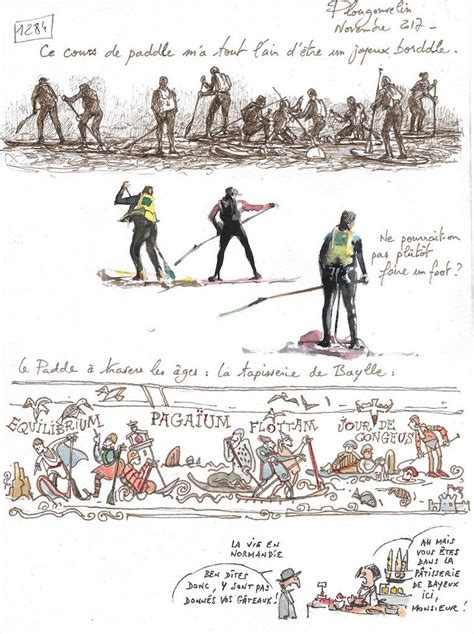 1284
Plougonvelin
Novembre 2017 -
Ce cours de paddle m'a tout l'air d'être un joyeux borddle.
Ne pourrait-on
pas plutôt
faire un foot ?
Le Paddle à travers les âges : La tapisserie de Baylle :
EQUILIBRIUM PAGAÏUM FLOTTAM JOUR DE
CONGEUS
LA VIE EN
NORMANDIE
BEN DITES
DONC, Y SONT PAS
DONNÉS VOS GÂTEAUX !
AH MAIS
VOUS ÊTES
DANS LA
PÂTISSERIE
DE BAYEUX
ICI,
MONSIEUR !